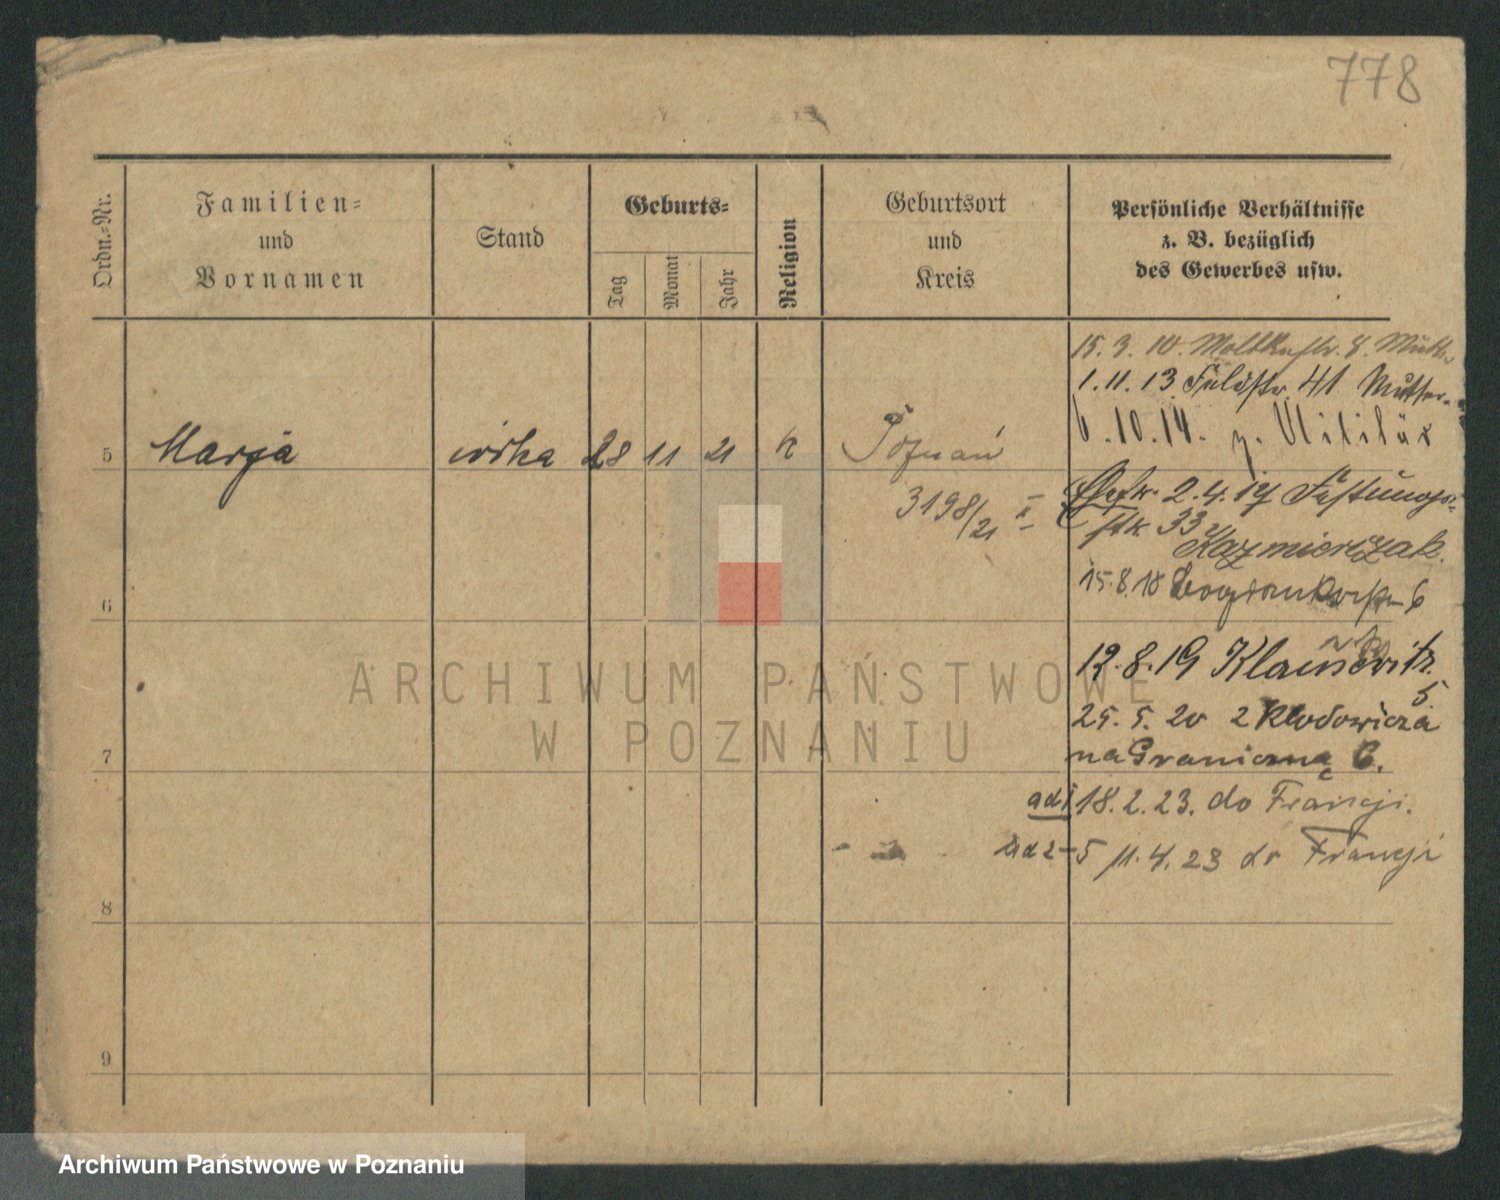 778
Ordn.-Nr.
Familien-
und
Vornamen
Stand
Geburts-
Tag
Monat
Jahr
Religion
Geburtsort
und
Kreis
Persönliche Verhältnisse
z. B. bezüglich
des Gewerbes usw.
15. 3. 10. Moltkestr. 8. Mutter
1. 11. 13 Feldstr. 41 Mutter
6. 10. 14. z. Militär
5 Marja córka 28 11 21 k Poznań
3198/21 II
2. 4. 17 Festungs-
33
Kazmierczak.
15. 8. 18 6
12. 8. 19
5
25. 5. 20 z
na Graniczną 6.
ad 1 18. 2. 23. do Francji.
ad 2-5 11. 4. 23 do Francji
6
7
8
9
ARCHIWUM PAŃSTWOWE
W POZNANIU
Archiwum Państwowe w Poznaniu